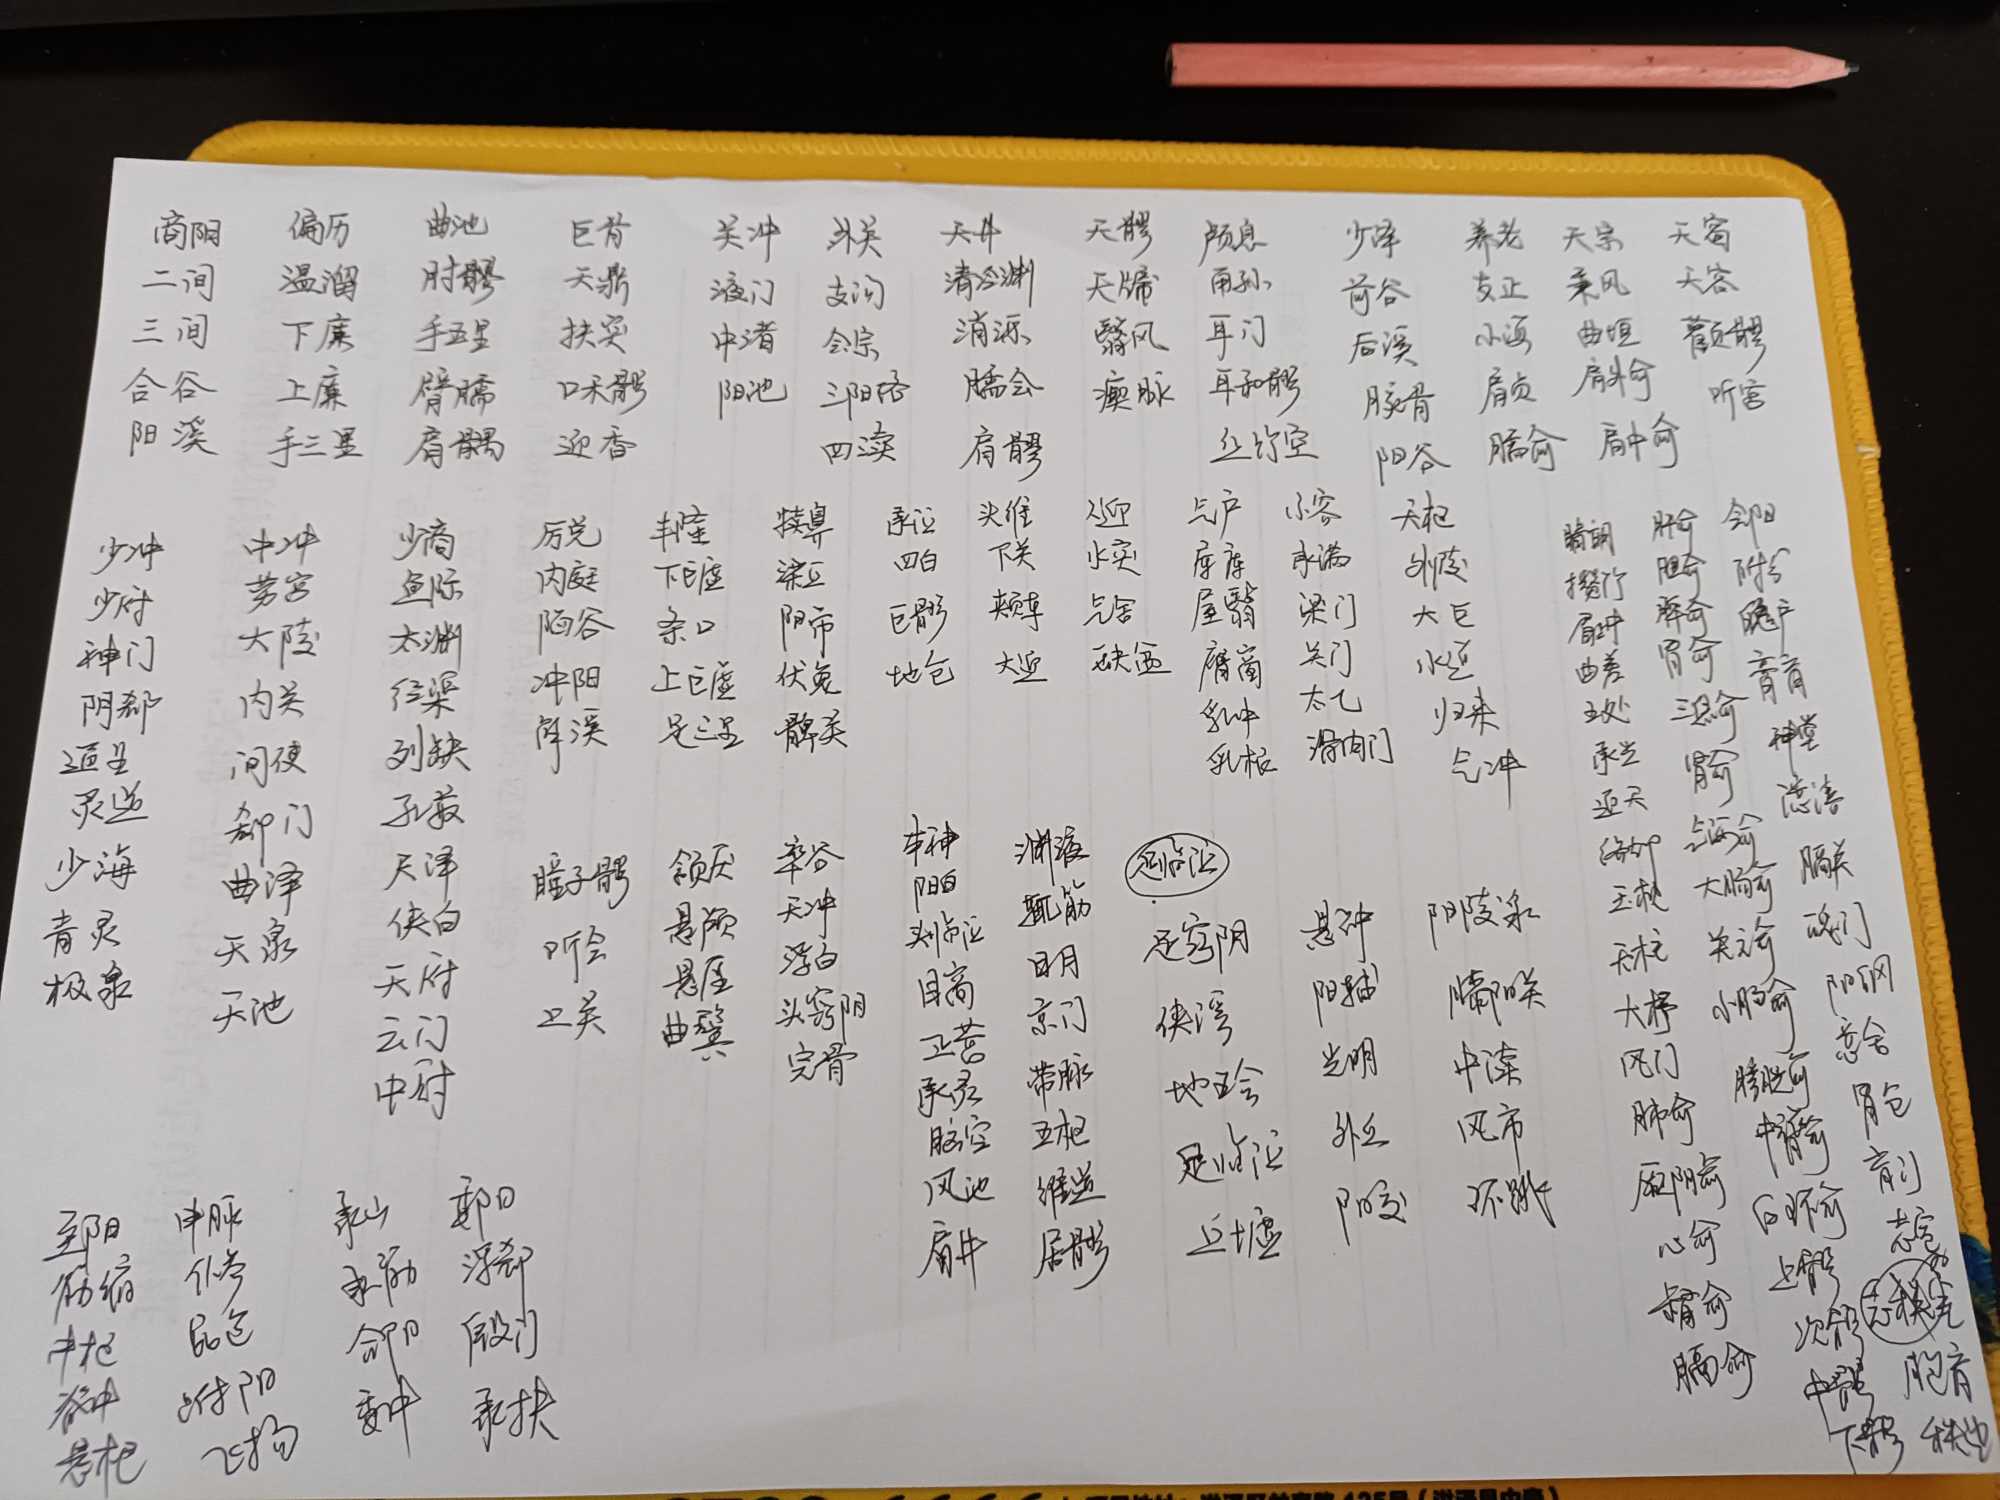 商阳 偏历 曲池 巨骨 关冲 外关 天井 天髎 颅息 少泽 养老 天宗 天窗
二间 温溜 肘髎 天鼎 液门 支沟 清冷渊 天牖 角孙 前谷 支正 秉风 天容
三间 下廉 手五里 扶突 中渚 会宗 消泺 翳风 耳门 后溪 小海 曲垣 颧髎
合谷 上廉 臂臑 口禾髎 阳池 三阳络 臑会 瘈脉 耳和髎 腕骨 肩贞 肩外俞 听宫
阳溪 手三里 肩髃 迎香 四渎 肩髎 丝竹空 阳谷 臑俞 肩中俞
少冲 中冲 少商 厉兑 丰隆 犊鼻 承泣 头维 人迎 气户 不容 天枢 睛明 肝俞 会阳
少府 劳宫 鱼际 内庭 下巨虚 梁丘 四白 下关 水突 库房 承满 外陵 攒竹 胆俞 附分
神门 大陵 太渊 陷谷 条口 阴市 巨髎 颊车 气舍 屋翳 梁门 大巨 眉冲 脾俞 魄户
阴郄 内关 经渠 冲阳 上巨虚 伏兔 地仓 大迎 缺盆 膺窗 关门 水道 曲差 胃俞 膏肓
通里 间使 列缺 解溪 足三里 髀关 乳中 太乙 归来 五处 三焦俞 神堂
灵道 郄门 孔最 乳根 滑肉门 气冲 承光 肾俞 譩譆
少海 曲泽 尺泽 瞳子髎 颔厌 率谷 本神 渊液 通天 气海俞 膈关
青灵 天泉 侠白 听会 悬颅 天冲 阳白 辄筋 足窍阴 悬钟 阴陵泉 络却 大肠俞 魂门
极泉 天池 天府 上关 悬厘 浮白 头临泣 日月 侠溪 阳辅 膝阳关 玉枕 关元俞 阳纲
云门 曲鬓 头窍阴 目窗 京门 地五会 光明 中渎 天柱 小肠俞 意舍
中府 完骨 正营 带脉 足临泣 外丘 风市 大杼 膀胱俞 胃仓
承灵 五枢 丘墟 阳交 环跳 风门 中膂俞 肓门
脑空 维道 肺俞 白环俞 志室
风池 居髎 厥阴俞 上髎
肩井 心俞 次髎 胞肓
督俞 中髎 秩边
膈俞 下髎
至阳 申脉 承山
筋缩 仆参 承筋 浮郄
中枢 合阳 殷门
脊中 跗阳 委中 承扶
悬枢 飞扬